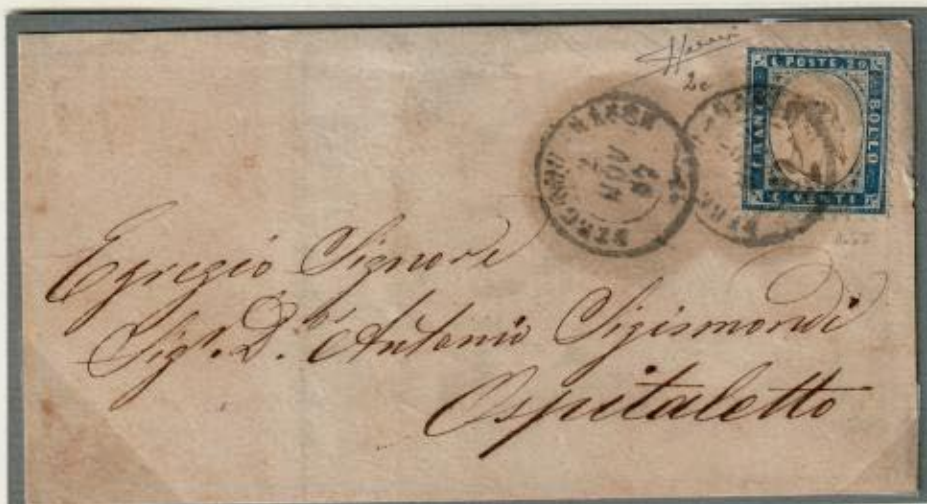 2c
C POSTE 20
FRANCO
BOLLO
C VENTI
BERGAMO
NOV
Egregio Signore
Sigr. Dr. Antonio Sigismondi
Ospitaletto